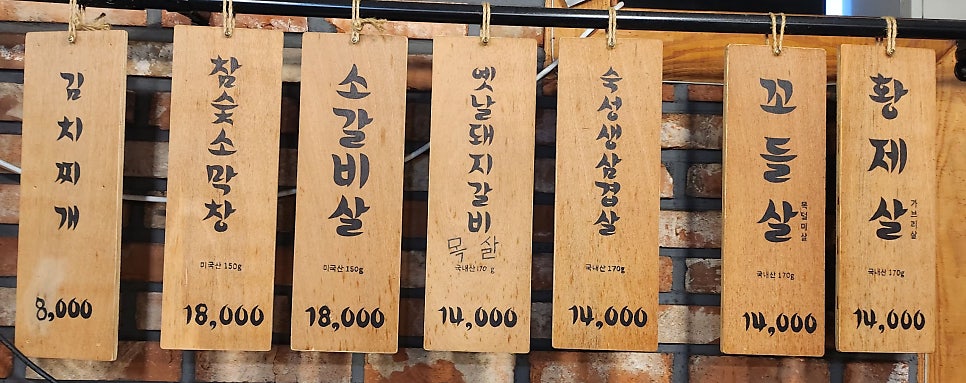 김치찌개
8,000
참숯소막창
미국산 150g
18,000
소갈비살
미국산 150g
18,000
옛날돼지갈비
목살
국내산 170g
14,000
숙성생삼겹살
국내산 170g
14,000
꼬들살
목덜미살
국내산 170g
14,000
황제살
가브리살
국내산 170g
14,000